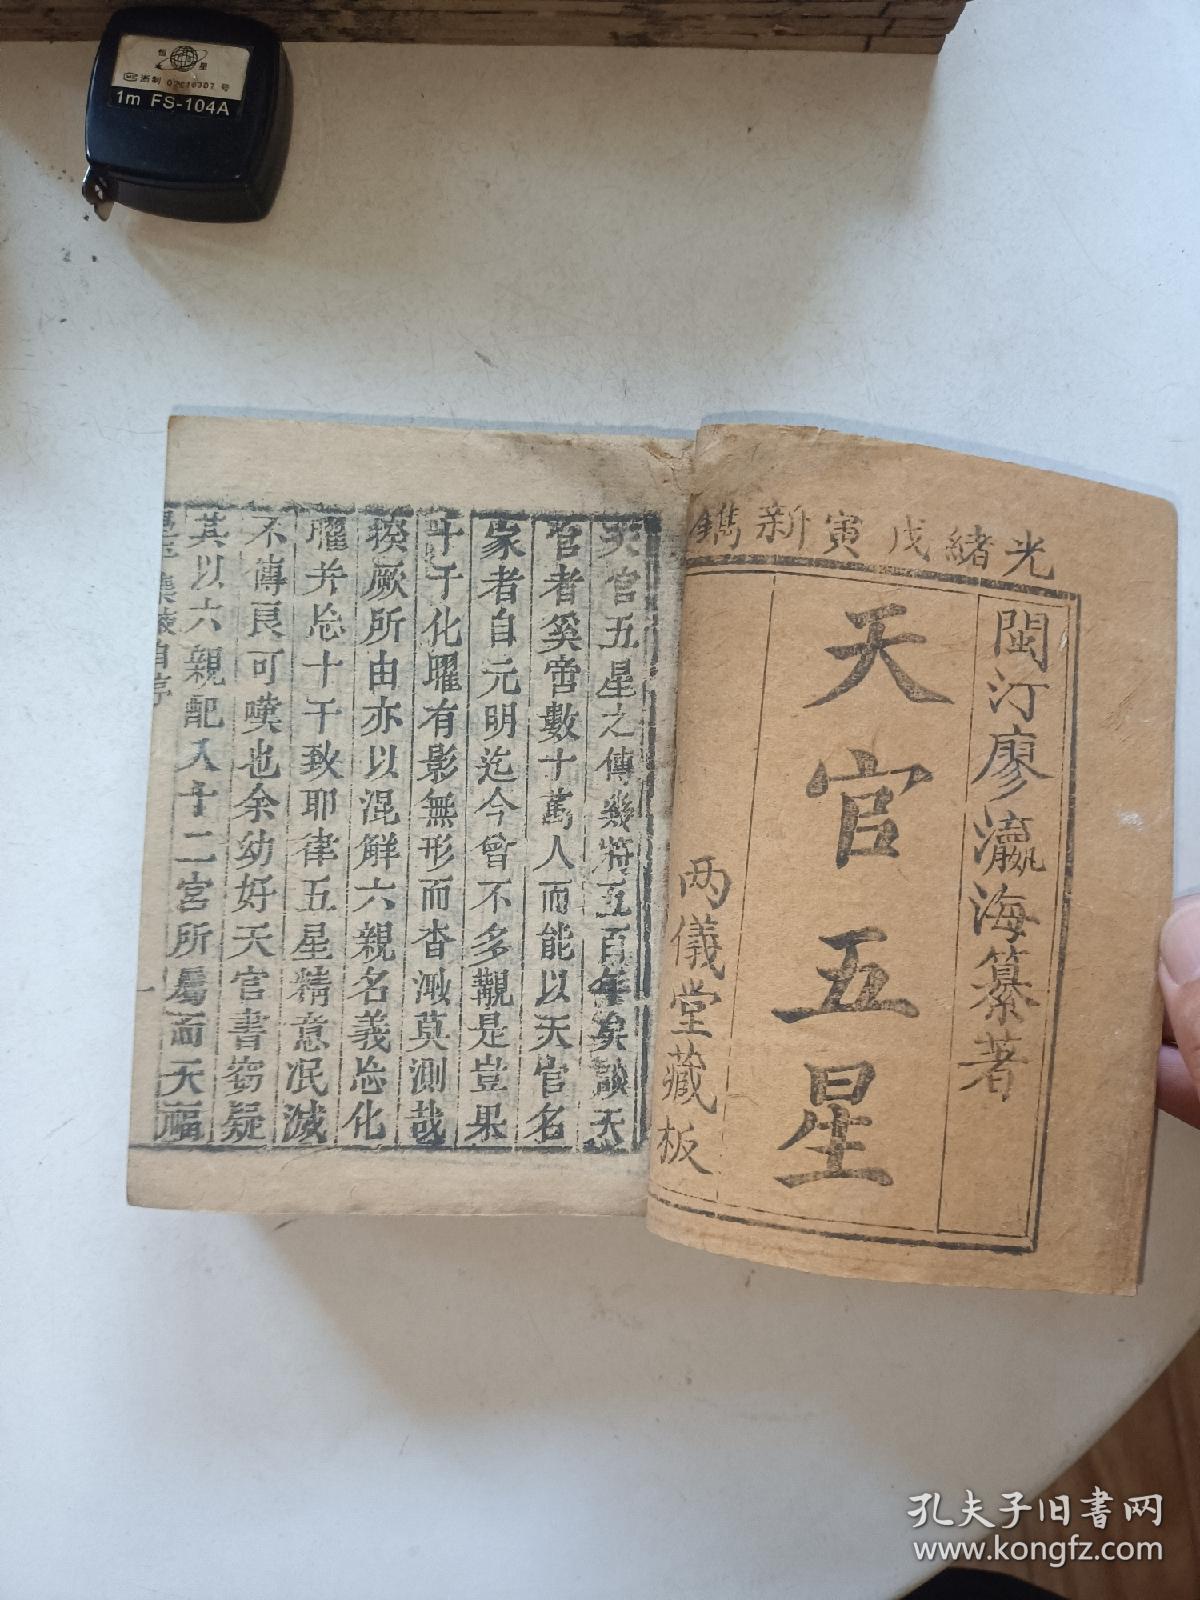 恒星
浙制 02010302 号
1m FS-104A
光緒戊寅新鐫
閩汀廖瀛海纂著
天官五星
两儀堂藏板
天官五星之傳幾將五百年矣談天
官者奚啻數十萬人而能以天官名
家者自元明迄今曾不多覯是豈果
斗干化曜有影無形而杳渺莫測哉
揆厥所由亦以混觧六親名義忩化
曜并忩十干致耶律五星精意泯滅
不傳良可嘆也余幼好天官書窃疑
其以六親配入十二宮所屬而天福
自序
一
孔夫子旧书网
www.kongfz.com